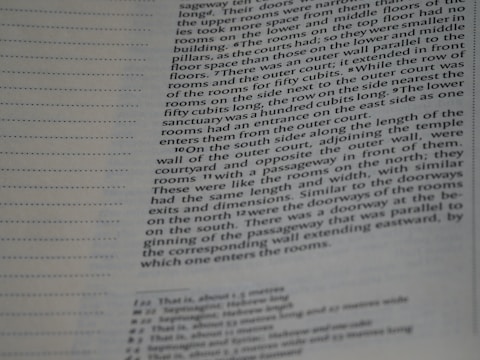 sageway ten c
long. Their doors w
the upper rooms were narrow
ies took more space from them than f
rooms on the lower and middle floors of the
building. 6 The rooms on the top floor had no
pillars, as the courts had; so they were smaller in
floor space than those on the lower and middle
floors. 7 There was an outer wall parallel to the
rooms and the outer court; it extended in front
of the rooms for fifty cubits. 8 While the row of
rooms on the side next to the outer court was
fifty cubits long, the row on the side nearest the
sanctuary was a hundred cubits long. 9 The lower
rooms had an entrance on the east side as one
enters them from the outer court.
10 On the south side along the length of the
wall of the outer court, adjoining the temple
courtyard and opposite the outer wall, were
rooms 11 with a passageway in front of them.
These were like the rooms on the north; they
had the same length and width, with similar
exits and dimensions. Similar to the doorways
on the north 12 were the doorways of the rooms
on the south. There was a doorway at the be-
ginning of the passageway that was parallel to
the corresponding wall extending eastward, by
which one enters the rooms.
l 22 That is, about 1.5 metres
m 22 Septuagint; Hebrew long
Septuagint; Hebrew length
That is, about 53 metres long and 27 metres wide
That is, about 11 metres
Septuagint and Syriac; Hebrew and one cubit
That is, about 5.3 metres wide and 53 metres long